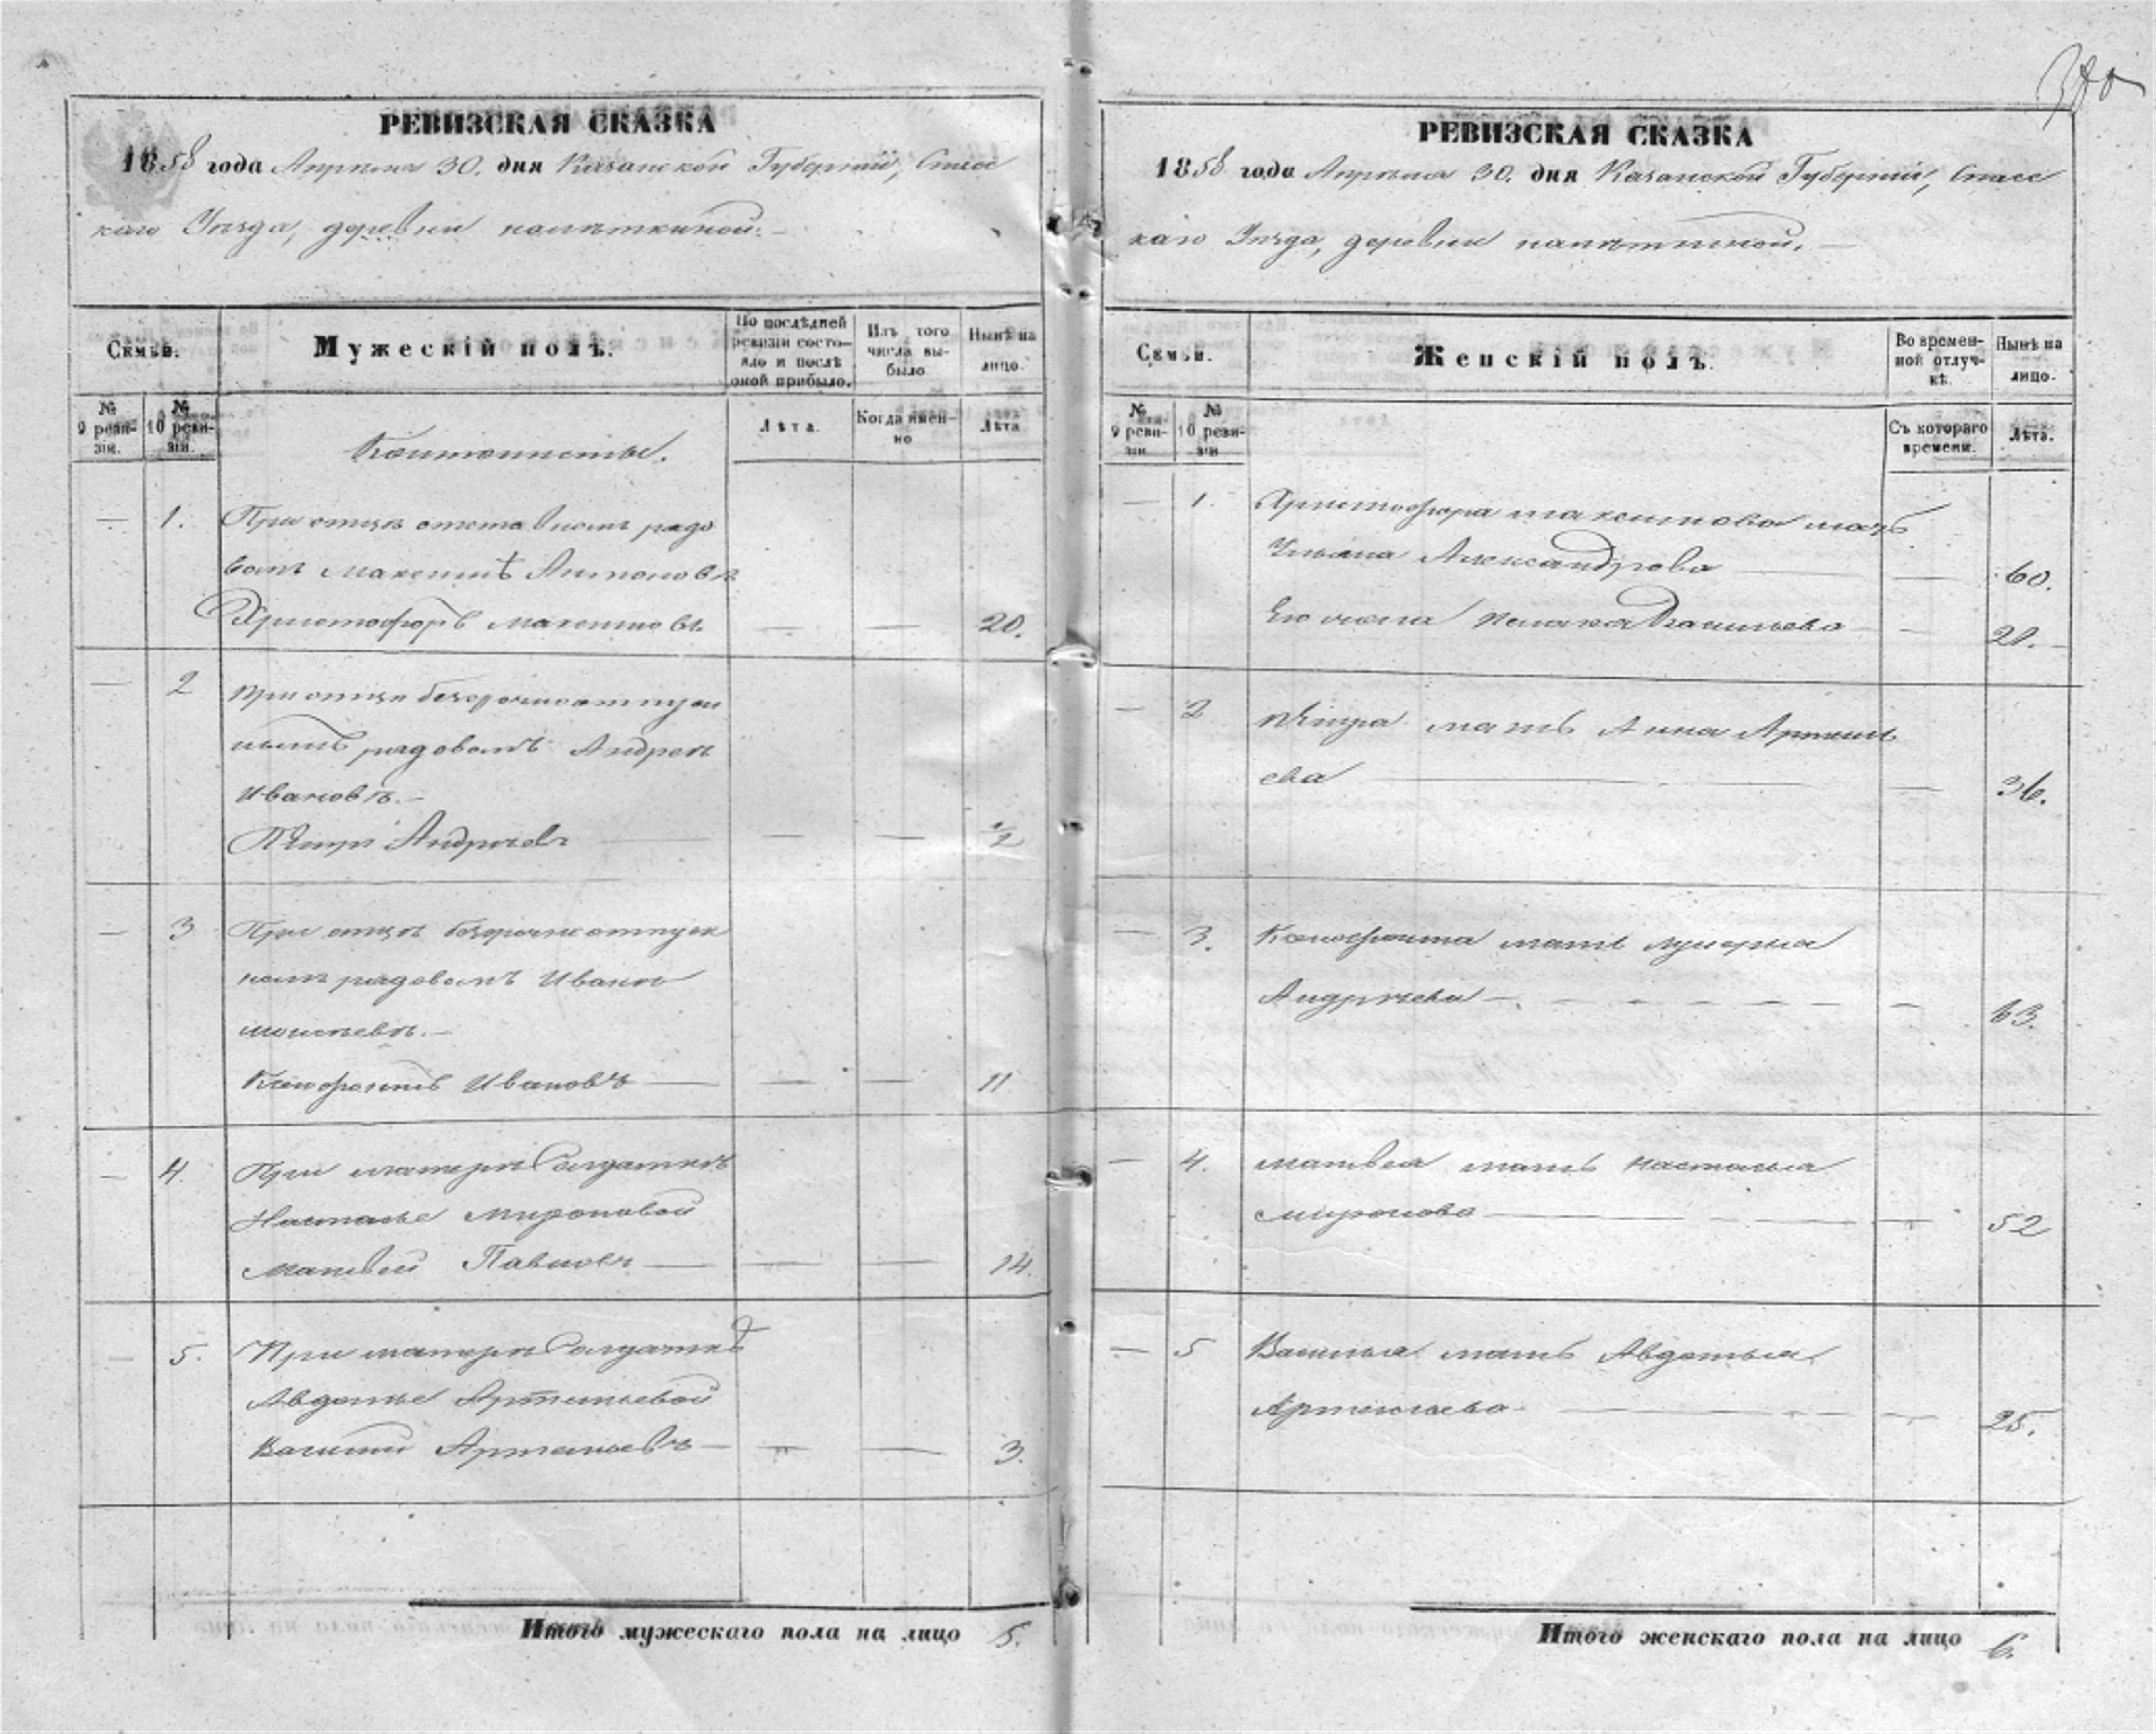 380
РЕВИЗСКАЯ СКАЗКА
1858 года Апреля 30. дня Казанской Губерніи, Спас
каго Уезда, деревни
Семьи.
Мужескій полъ.
По послѣдней ревизіи состояло и послѣ оной прибыло.
Изъ того числа выбыло
Нынѣ на лицо.
№ 9 ревизіи.
№ 10 ревизіи.
Лѣта.
Когда именно
Лѣта
Кантонисты.
— 1. При отцѣ отставномъ рядо
вомъ Максимѣ Антоновѣ
Христофоръ Максимовъ — — 20.
— 2 При отцѣ безсрочноотпуск
нымъ рядовомъ Андреѣ
Ивановѣ.—
Петръ Андреевъ — — 1/2
— 3 При отцѣ безсрочноотпуск
номъ рядовомъ Иванѣ
Моисѣевѣ.—
Ксенофонтъ Ивановъ — — — 11
— 4. При матери Солдаткѣ
Настасье Мироновой
Матвей Павловъ — — — 14.
— 5. При матери Солдаткѣ
Авдотье Артемьевой
Василий Артемьевъ — — — 3.
Итого мужескаго пола на лицо 5.
РЕВИЗСКАЯ СКАЗКА
1858 года Апреля 30. дня Казанской Губерніи, Спасс
каго Уезда, деревни
Семьи.
Женскій полъ.
Во временной отлучкѣ.
Нынѣ на лицо.
№ 9 ревизіи
№ 10 ревизіи
Съ котораго времени.
Лѣта.
— 1. Христофора Максимова мать
Ульяна Александрова — — 60.
Его жена Васильева — 21.
— 2 Петра мать Анна Артемь
ева — — 36.
— 3. Ксенофонта мать Лукерья
Андреева — — 33.
— 4. Матвея мать Настасья
Миронова — — 52
— 5 Василья мать Авдотья
Артемьева — — 25.
Итого женскаго пола на лицо 6.